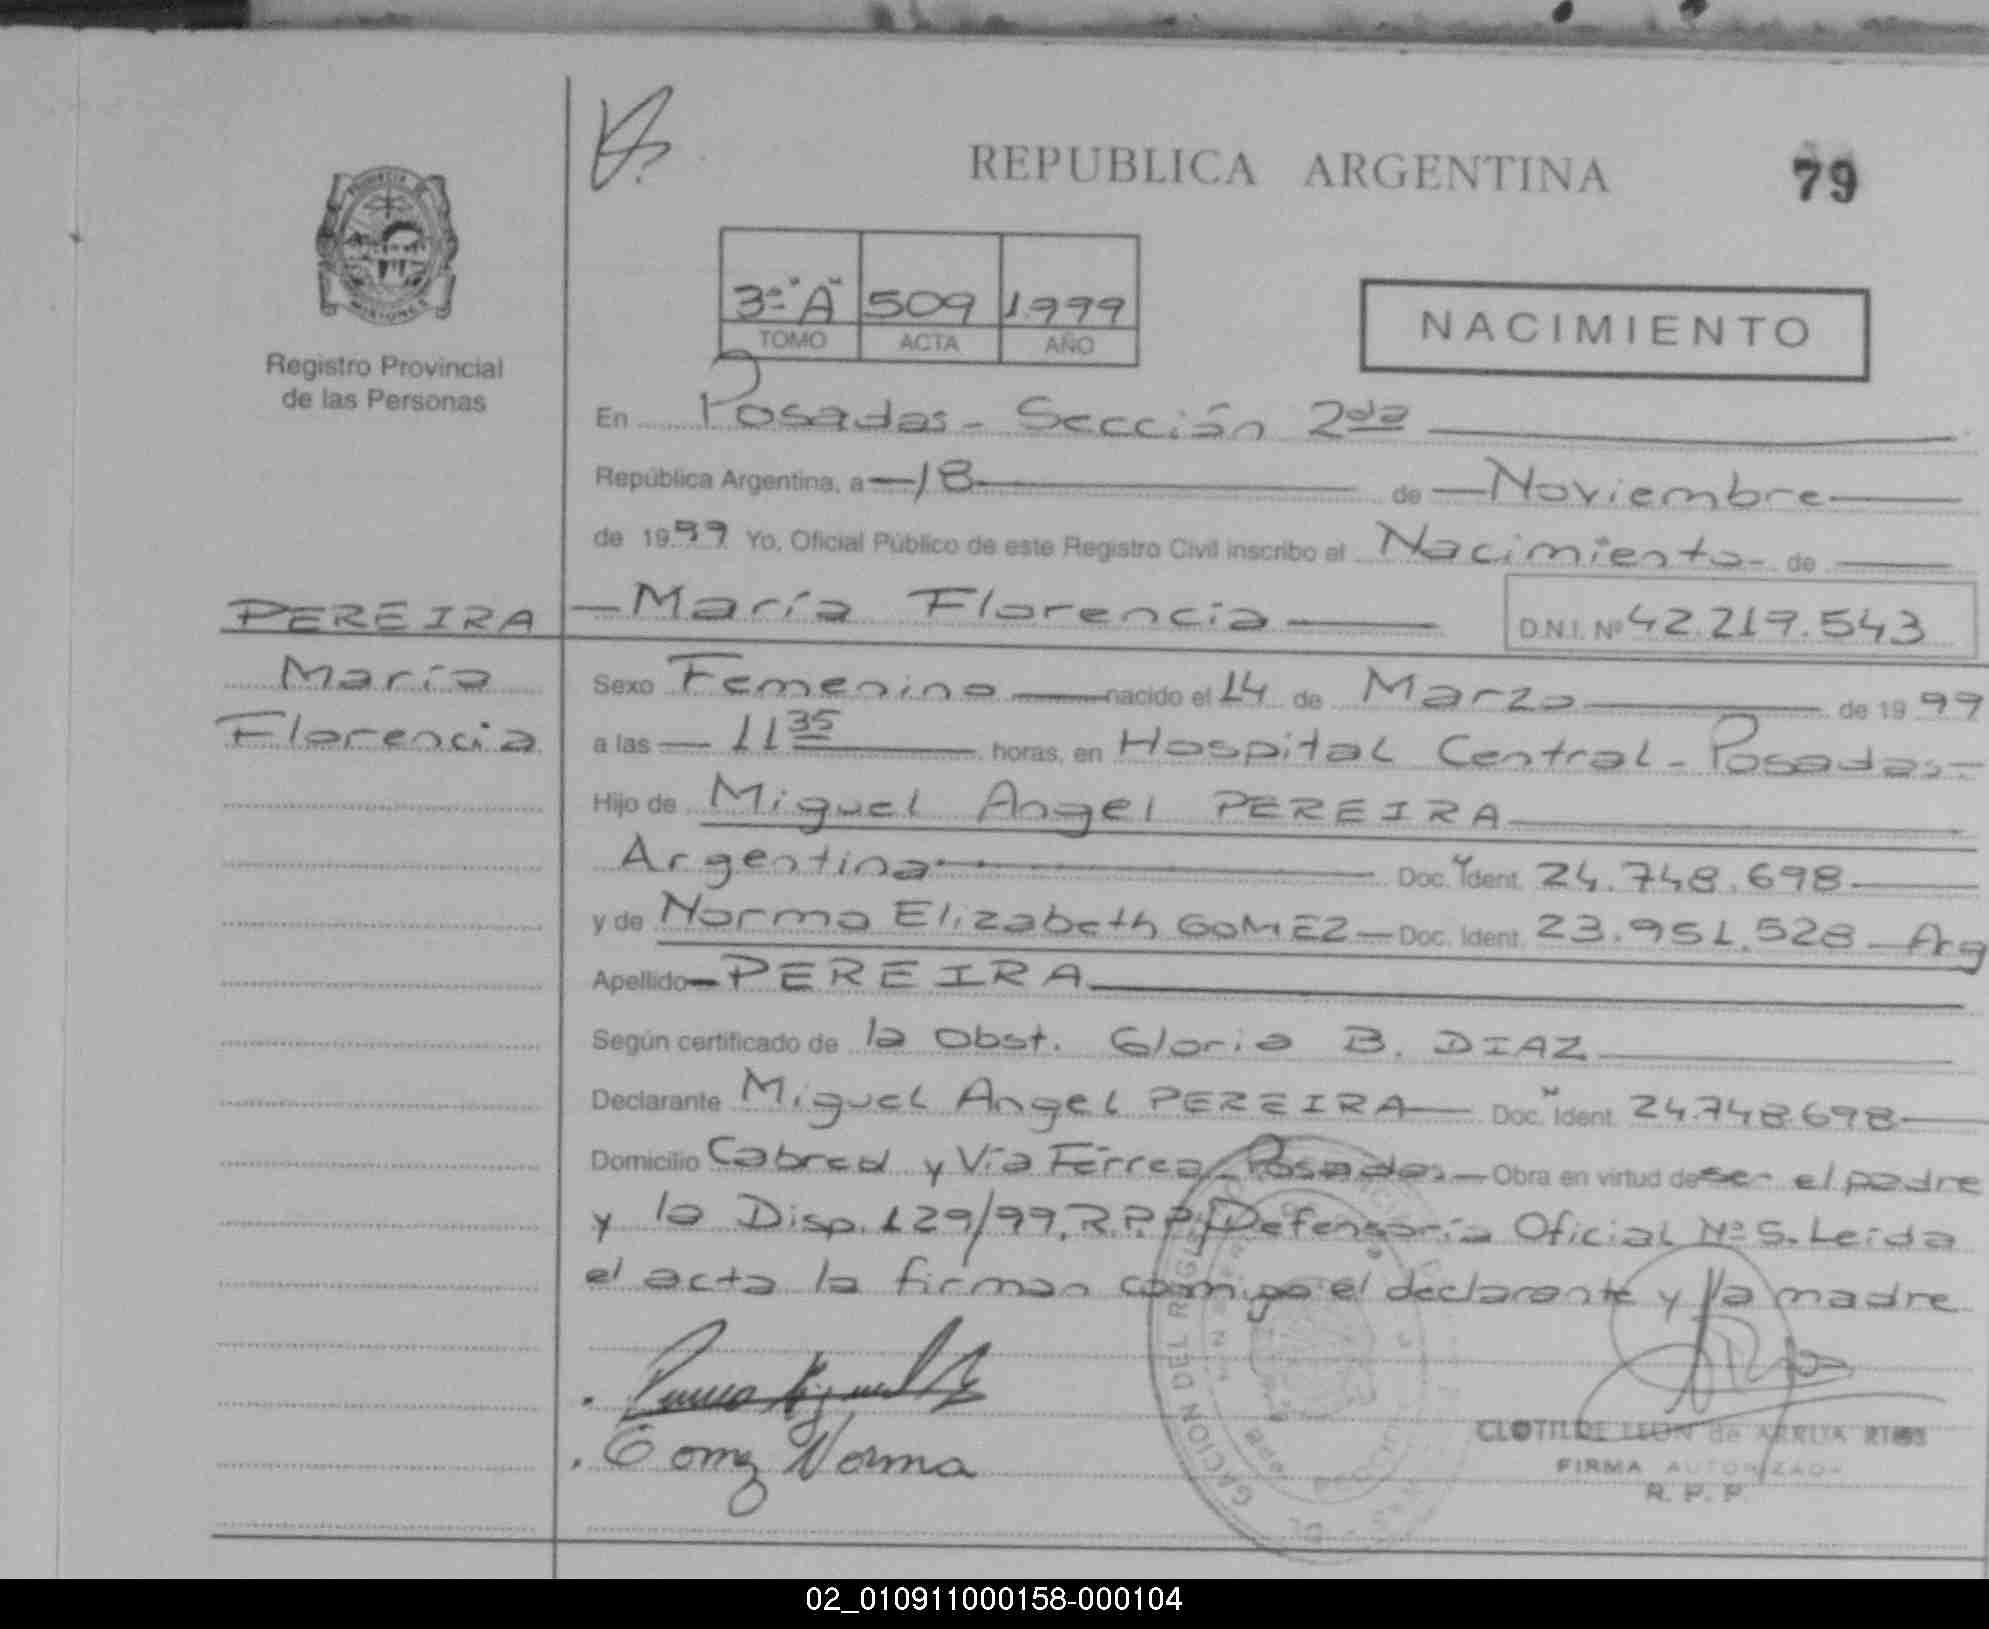 REPUBLICA ARGENTINA
79
PROVINCIA DE
MISIONES
Registro Provincial
de las Personas
3º "A" 509 1999
TOMO ACTA AÑO
NACIMIENTO
En Posadas - Sección 2da
República Argentina, a 18 de Noviembre
de 1999 Yo, Oficial Público de este Registro Civil inscribo el Nacimiento de
PEREIRA
María
Florencia
María Florencia D.N.I. Nº 42.217.543
Sexo Femenino nacido el 14 de Marzo de 1999
a las 11 35 horas, en Hospital Central - Posadas -
Hijo de Miguel Angel PEREIRA
Argentina Doc. Ident. 24.748.698
y de Norma Elizabeth GOMEZ - Doc. Ident. 23.951.528 - Arg
Apellido - PEREIRA
Según certificado de la Obst. Gloria B. DIAZ
Declarante Miguel Angel PEREIRA - Doc. Ident. 24.748.698
Domicilio Cabred y Vía Férrea - Posadas. - Obra en virtud de ser el padre
y la Disp. 129/99. R.P.P/Defensoría Oficial Nº 5. Leída
el acta la firman conmigo el declarante y la madre
Gomz Norma
CLOTILDE LEON de ARRUA
FIRMA AUTORIZADA
R. P. P.
02_010911000158-000104